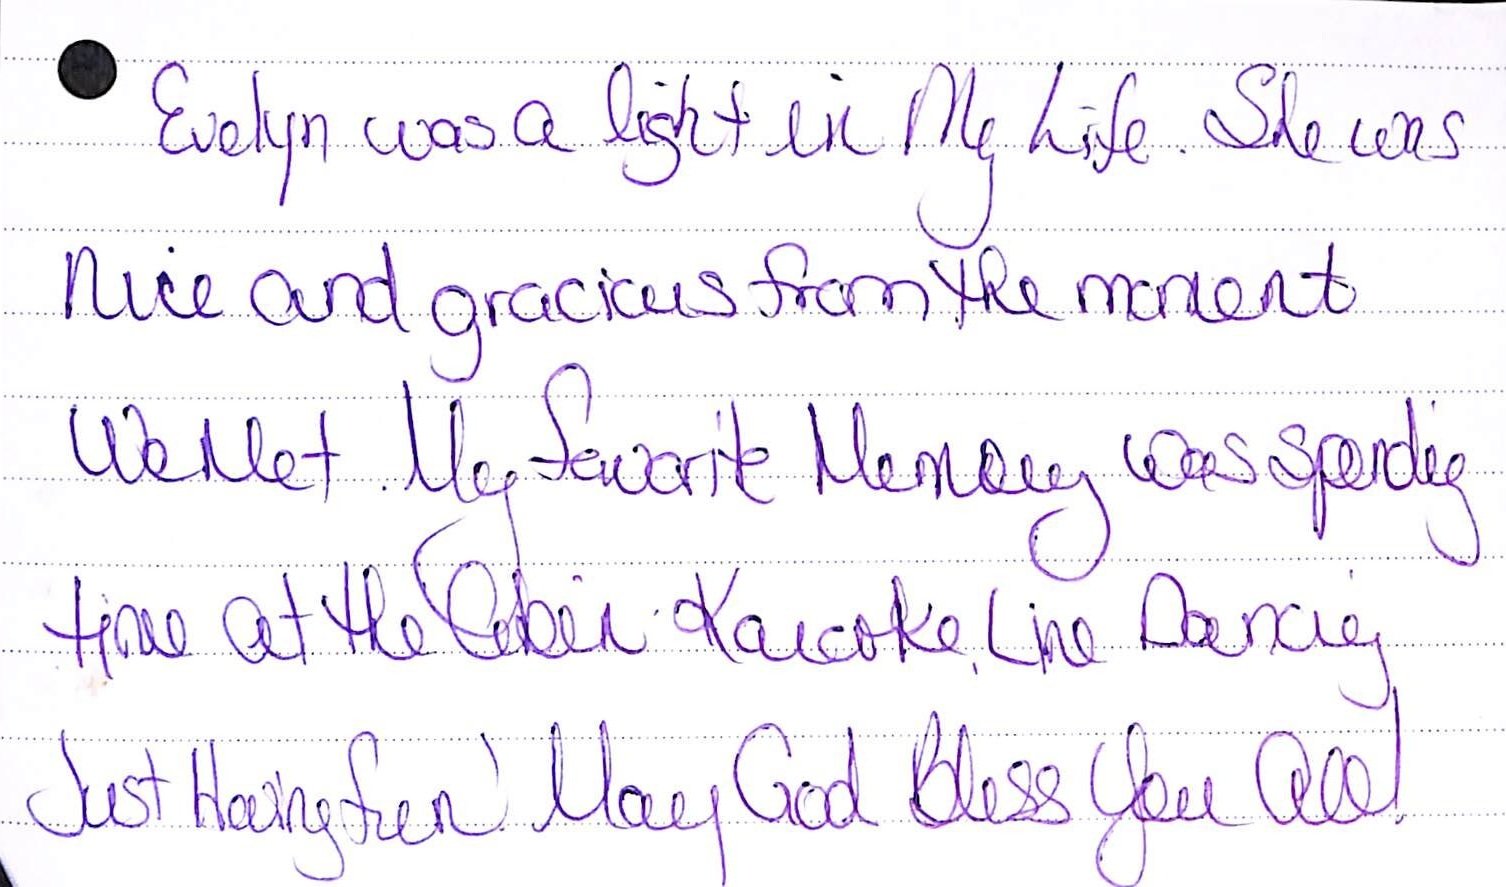 Evelyn was a light in My Life. She was
Nice and gracious from the moment
We Met. My favorite Memory was spending
time at the Cabin. Karaoke, Line Dancing
Just Having fun! May God Bless You All!